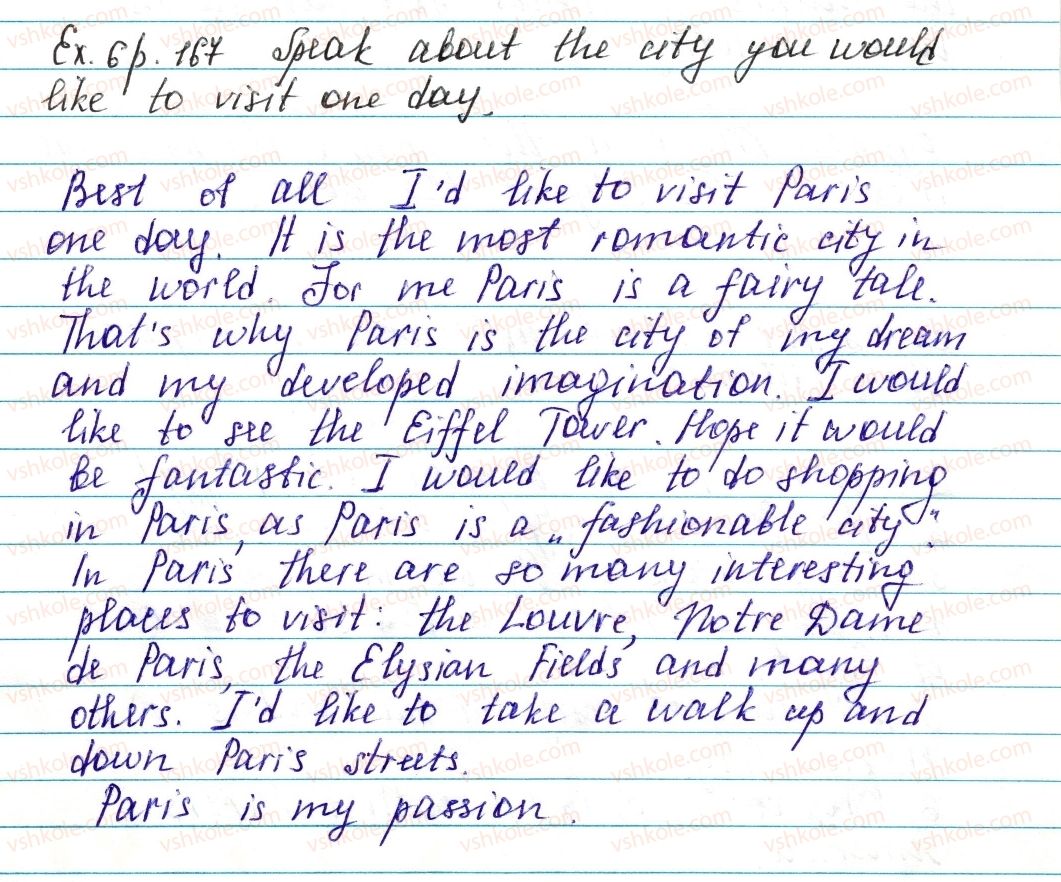 Ex. 6 p. 167 Speak about the city you would
like to visit one day.
Best of all I'd like to visit Paris
one day. It is the most romantic city in
the world. For me Paris is a fairy tale.
That's why Paris is the city of my dream
and my developed imagination. I would
like to see the Eiffel Tower. Hope it would
be fantastic. I would like to do shopping
in Paris, as Paris is a „fashionable city".
In Paris there are so many interesting
places to visit: the Louvre, Notre Dame
de Paris, the Elysian Fields and many
others. I'd like to take a walk up and
down Paris streets.
Paris is my passion.
vshkole.com